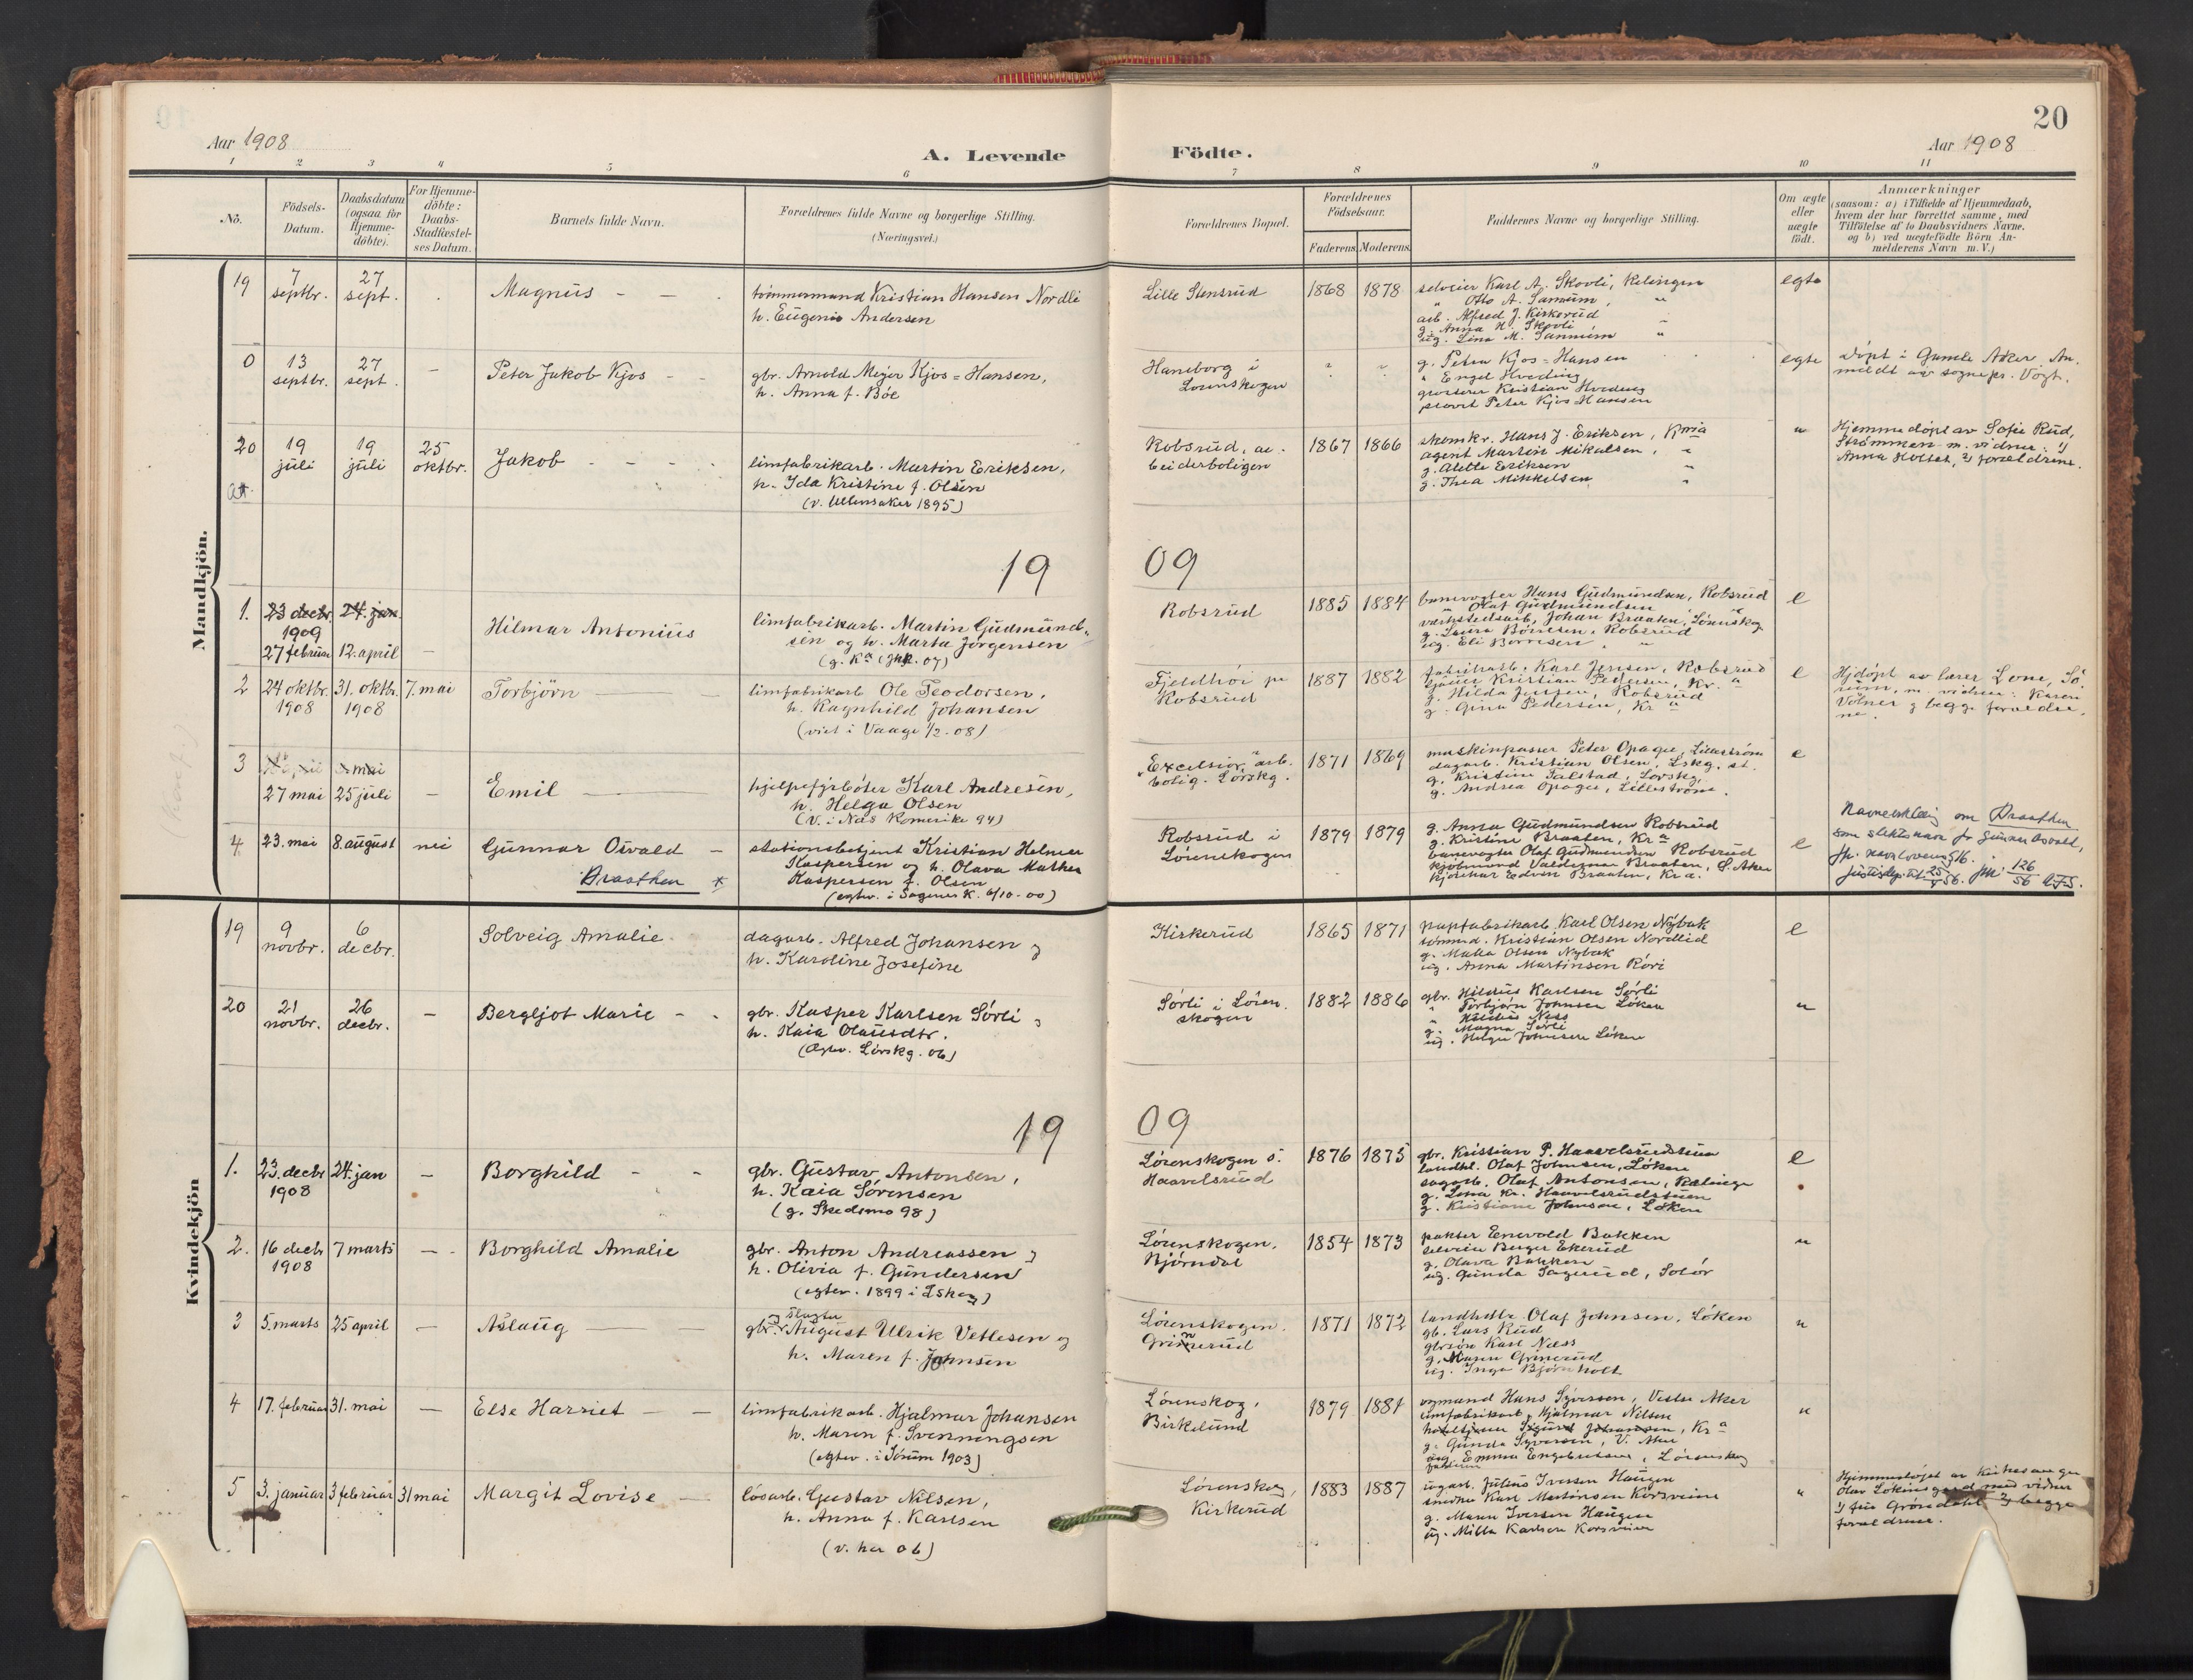 20
Aar 1908
A. Levende
Födte.
Aar 1908
1 2 3 4 5 6 7 8 9 10 11
No.
Födsels-
Datum.
Daabsdatum
(ogsaa for
Hjemme-
döbte).
For Hjemme-
döbte:
Daabs-
Stadfæstel-
ses Datum.
Barnets fulde Navn.
Forældrenes fulde Navne og borgerlige Stilling.
(Næringsvei.)
Forældrenes Bopæl.
Forældrenes
Födselsaar.
Faderens. Moderens.
Faddernes Navne og borgerlige Stilling.
Om ægte
eller
uægte
födt.
Anmærkninger
(saasom: a) i Tilfælde af Hjemmedaab,
hvem der har forrettet samme, med
Tilföielse af to Daabsvidners Navne.
og b) ved uægtefödte Börn An-
melderens Navn m. V.)
Mandkjön.
19
7
septbr.
27
sept.
Magnus
tömmermand Kristian Hansen Nordli
h. Eugenie Andersen
Lille Stensrud
1868 1878
selveier Karl A. Skovli, Relingen
" Otto A. Sannum, "
arb. Alfred J. Kirkerud
g. Anna H. Skovli "
ug. Lina M. Sannum "
egte
0
13
septbr.
27
sept.
—
Peter Jakob Kjos
gbr. Arnold Meyer Kjos=Hansen,
h. Anna f. Böe
Haneborg i
Lorenskogen
" "
g. Petra Kjos=Hansen
" Engel Hveding
grosserer Kristian Hveding
provst Peter Kjos Hansen
egte
Döpt i Gamle Aker. An.
meldt av sognepr. Vogt.
20
19
juli
19
juli
25
oktbr.
Jakob
limfabrikarb. Martin Eriksen,
h. Ida Kristine f. Olsen
(v. Ullensaker 1895)
Robsrud, ar-
beiderboligen
1867 1866
skomkr. Hans J. Eriksen, Kria
agent Martin Mikalsen, "
g. Alette Eriksen "
g. Thea Mikkelsen "
"
Hjemmedöpt av Sofie Rud,
Strömmen m. vidner: 1)
Anna Holtet, 2) forældrene.
19 09
1.
23 decbr.
1909
27 februar
24. jan.
12. april
—
Hilmar Antonius
limfabrikarb. Martin Gudmund-
sen og h. Marta Jörgensen
Robsrud
1885 1884
banevogter Hans Gudmundsen, Robsrud
" Olaf Gudmundsen "
verkstedsarb. Johan Braaten, Lörnskog
g. Laura Börresen, Robsrud
ug. Eli Börresen "
e
2
24 oktbr.
1908
31. oktbr.
1908
7. mai
Torbjörn
limfabrikarb Ole Teodorsen,
h. Ragnhild Johansen
(viet i Vaage 1/2-08)
Fjeldhöi pr
Robsrud
1887 1882
fabrikarb. Karl Jensen, Robsrud
Kristian Pedersen, Kr.a
g. Hilda Jensen, Robsrud
g. Gina Pedersen, Kr a
e
Hjdöpt av lærer Lone, Sö
rum, m. vidner: Karen
Volner g begge forældre.
ne.
3
27 mai
25 juli
—
Emil
hjelpefyrböter Karl Andresen,
h. Helga Olsen
(v. i Nes Romerike 94)
"Excelsior" arb.
bolig. Lörskg.
1871 1869
maskinpasser Peter Opager, Lilleström
dagarb. Kristian Olsen, Lskg. st.
g. Kristine Talstad, Lorskg.
g. Andrea Opager, Lilleström.
e
4
23. mai
8. august
nei
Gunnar Osvald
Braathen *
stationsbetjent Kristian Helmer
Kaspersen og h. Olava Mathea
Kaspersen f. Olsen
(egtev. i Sagenes K. 6/10-00)
Robsrud i
Lörenskogen
1879 1879
g. Anna Gudmundsen Robsrud
g. Kristine Braaten, Kr a
banevogter Olaf Gudmundsen Robsrud
kjöbmand Valdemar Braaten, S. Aker
Edvin Braaten, Kr a.
e
Navneerklæring om Braathen
som slektsnavn for Gunnar Osvald,
jfr. navneloven § 16.
Kvindekjön
19
9
novbr.
6
decbr.
Solveig Amalie
dagarb. Alfred Johansen g
h. Karoline Josefine
Kirkerud
1865 1871
papfabrikarb. Karl Olsen Nybak
tömmerm. Kristian Olsen Nordlid
g. Malla Olsen Nybak
ug. Anna Martinsen Röri
e
20
21
novbr.
26
decbr.
—
Bergljot Marie
gbr. Kasper Karlsen Sörli g
h. Kaia Olausdtr.
(Egtev. Lörskg. 06)
Sörli i Lören
skogen
1882 1886
gbr. Hildus Karlsen Sörli
" Torbjörn Johnsen Löken
g. Magna Sörli
ug. Helga Johnsen Löken
"
19 09
1.
23. decbr
1908
24. jan
—
Borghild
gbr. Gustav Antonsen,
h. Kaia Sörensen
(g. Skedsmo 98)
Lörenskogen s.
Haavelsrud
1876 1875
gbr. Kristian P. Haavelsrudstuen
landhl. Olaf Johnsen, Löken
sagarb. Olaf Antonsen, Rælingen
g. Lina Kr. Haavelsrudstuen
g. Kristiane Johnsen, Löken
e
2.
16 decbr
1908
7 marts
—
Borghild Amalie
gbr. Anton Andreassen g
h. Olivia f. Gundersen
(egtev. 1899 i Lskog)
Lörenskogen,
Bjørndal
1854 1873
pakter Enevold Bakken
selveier Berger Ekerud
g. Olava Bakken
ug. Gunda Sagerud, Solör
"
3
5. marts
25 april
—
Aslaug
g slagter
gbr. August Ulrik Vetlesen og
h. Maren f. Johnsen
Lörenskogen.
Grinerud
1871 1872
landhdlr. Olaf Johnsen, Löken
gb. Lars Rud
gbrsön Karl Næss
g. Maren Grinerud
ug. Inga Björnholt
"
4
17. februar
31. mai
—
Else Harriet
limfabrikarb. Hjalmar Johansen
h. Maren f. Svenningsen
(egtev. i Sörum 1903)
Lörenskog,
Birkelund
1879 1881
vognmand Hans Syversen, Vestre Aker
limfabrikarb. Hjalmar Nilsen
Sigurd Johansen, Kr a
g. Gunda Syversen, V. Aker
ug. Emma Engebretsen, Lörenskog
"
5
3. januar
3 februar
31 mai
Margit Lovise
lösarb. Gustav Nilsen,
h. Anna f. Karlsen
(v. her 06)
Lörenskog,
Kirkerud
1883 1887
Julius Iversen Haugen
snedker Karl Martinsen Korsveien
g. Maren Iversen Haugen
ug. Milla Karlsen Korsveien
"
Hjemmedöpt av kirkesanger
Olav Lokensgard med vidner
1) fru Gröndahl 2) begge
forældrene.